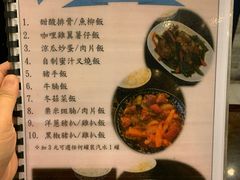 1. 甜酸排骨/魚柳飯
2. 咖哩雞翼薯仔飯
3. 涼瓜炒蛋/肉片飯
4. 自制蜜汁叉燒飯
5. 豬手飯
6. 牛腩飯
7. 冬菇菜飯
8. 粟米斑腩/肉片飯
9. 洋蔥豬扒/雞扒飯
10. 黑椒豬扒/雞扒飯
*加3元可選任何罐裝汽水1罐